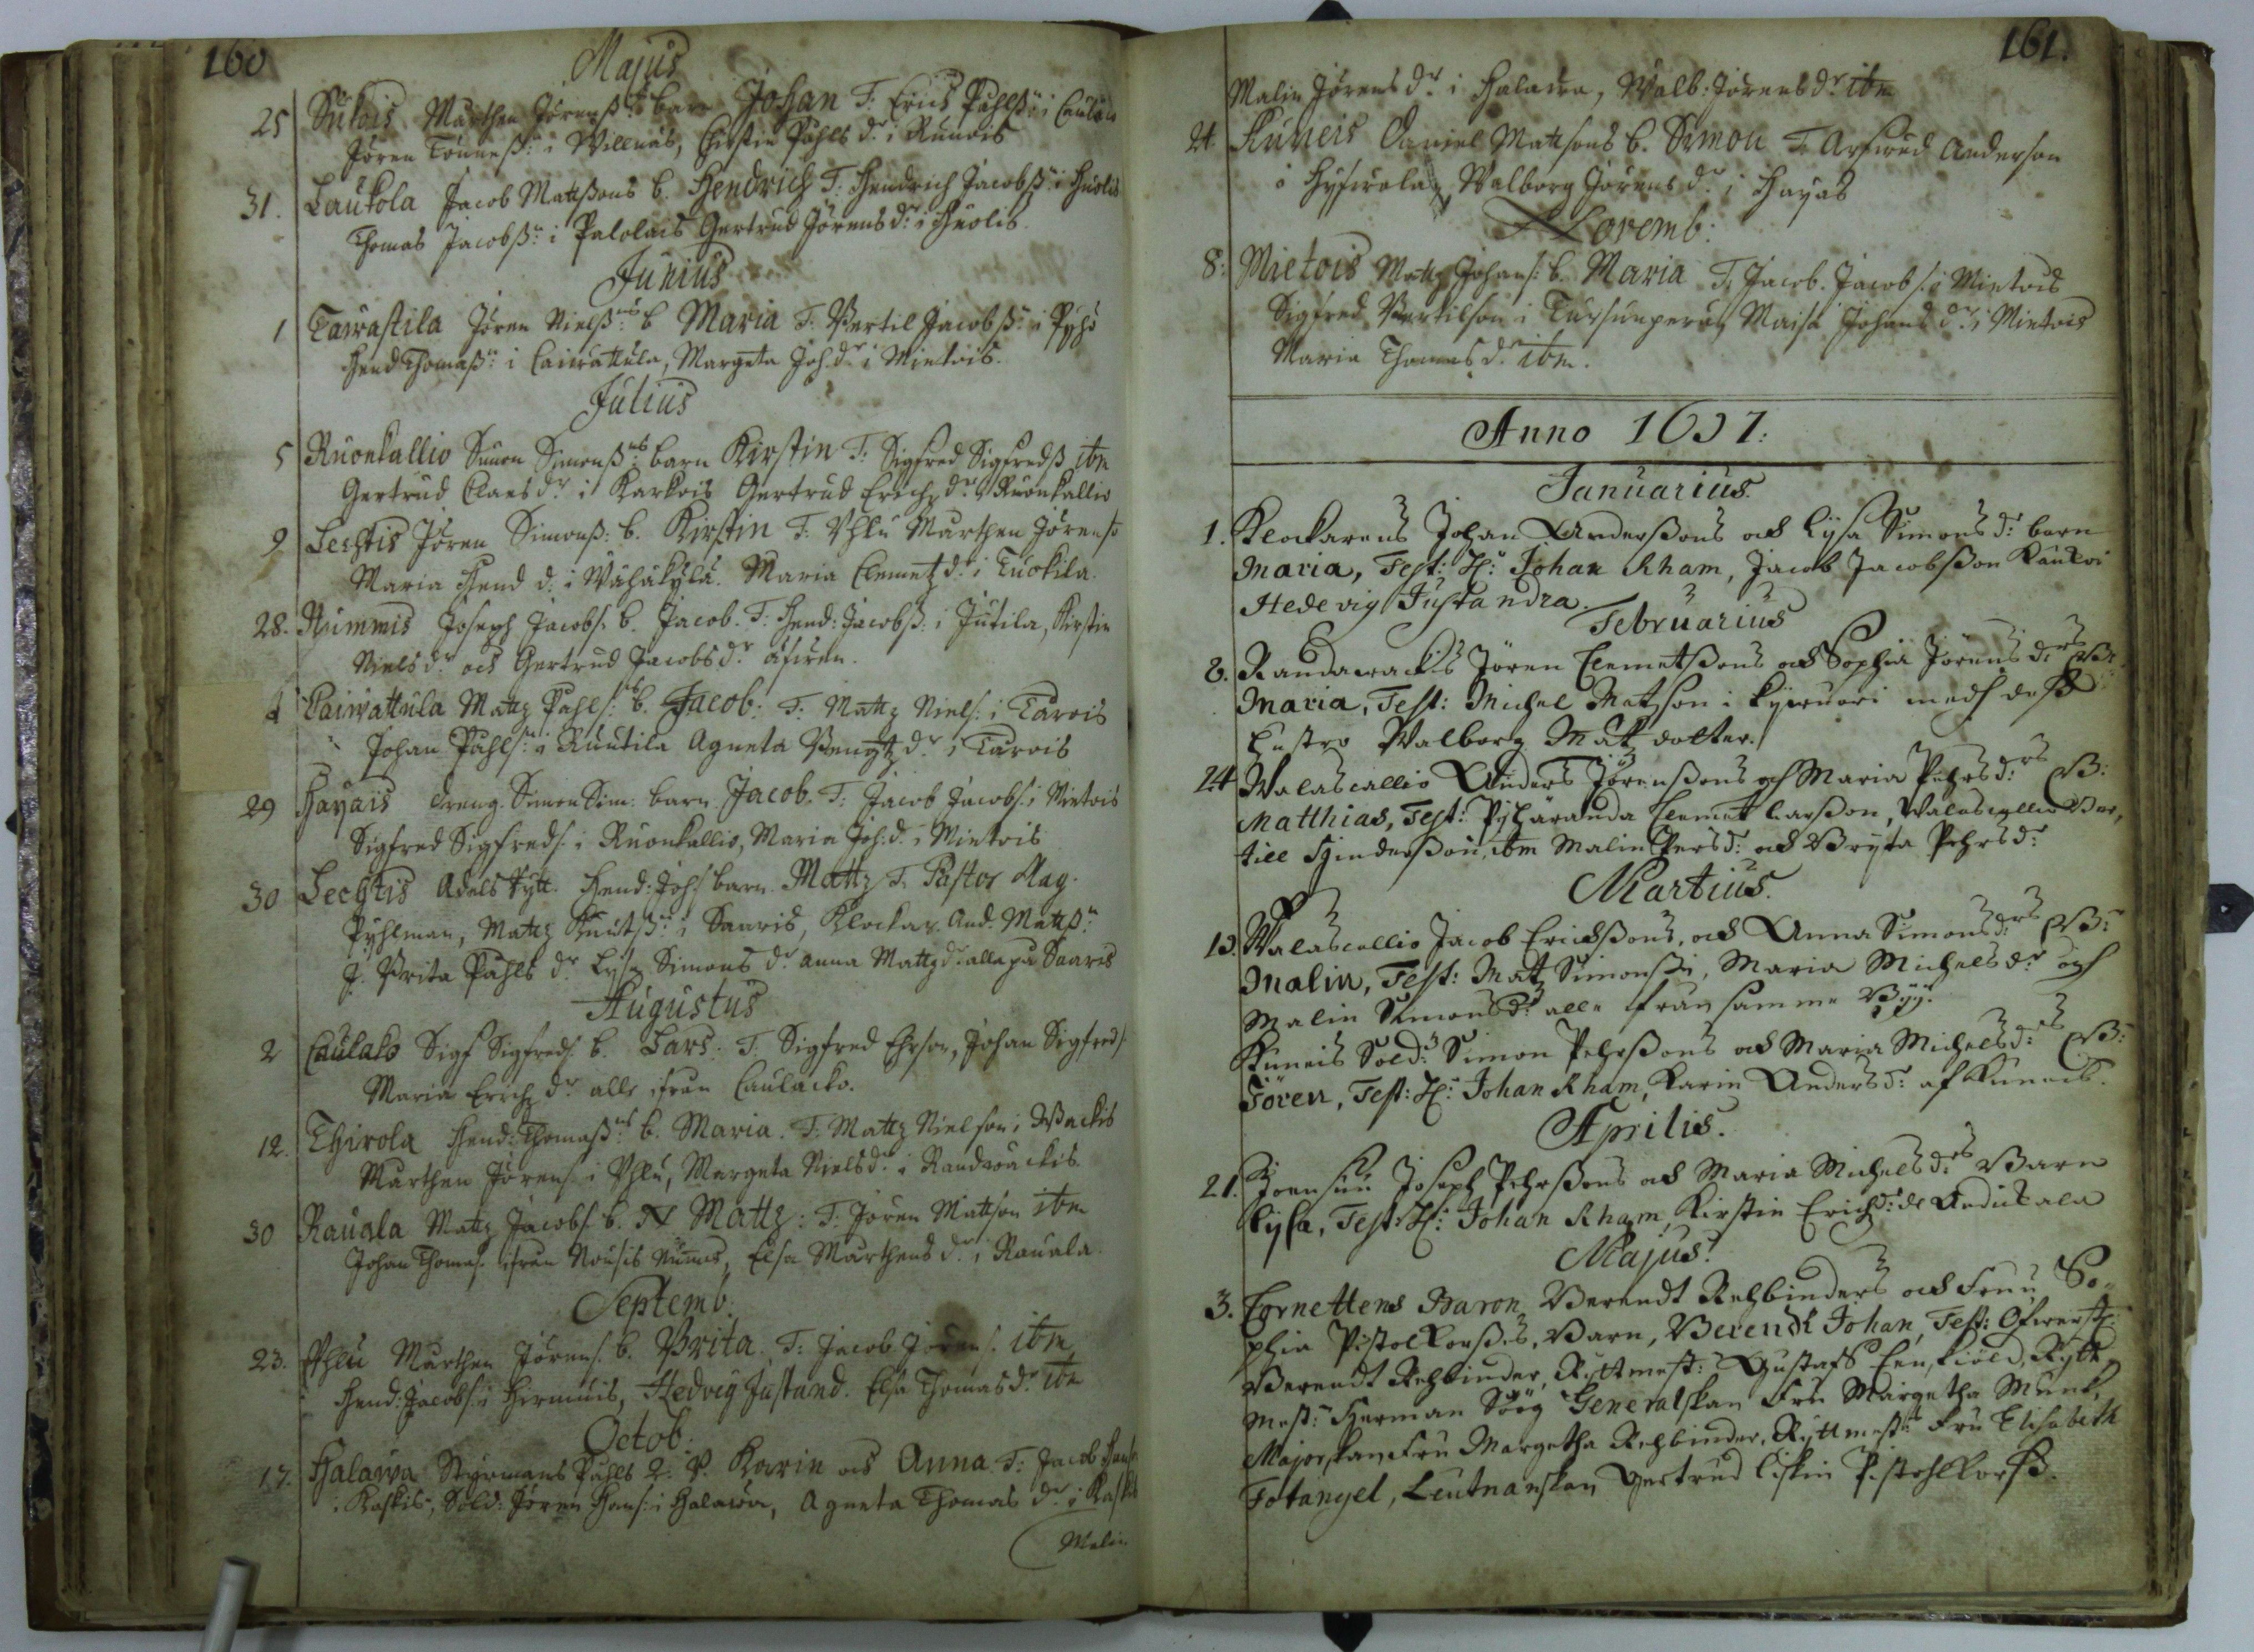 160
Majus
25 Sukois Marthen Jörenß:s barn Johan T: Erich Påhlß:n i Caulaco
Jören Tönneß:n i Willnäs, Chirstin Påhls d:r i Runois
31. Laukola Jacob Mattßons b. Hendrich T: Hendrich Jacobß:n i Huolis
Thomas Jacobß:n i Palolais Gertrud Jörens d:r i Huolis.
Junius
1 Tawastila Jören Nielß:ns b Maria T: Bertil Jacobß:n i Pyhö
Hend Thomaß:n i Caiwattula, Margeta Joh.d:r i Mietois.
Julius
5 Ruonkallio Simon Simonß:ns barn Kirstin T: Sigfred Sigfredß ibm
Gertrud Claes d:r i Karkois Gertrud Erichz d:r i Ruonkallio
9 Lechtis Jören Simonß: b. Kirstin T: Yhlu Marthen Jörens:
Maria Hend d: i Wähäkylä. Maria Clemetz d:r i Tuokila.
28. Nummis Joseph Jacobs: b. Jacob. T: Hend: Jacobß: i Jutila, Kirstin
Niels d:r och Gertrud Jacobs d:r äfwen.
4 Caiwattula Mattz Pahls:ns b. Jacob: T: Mattz Niels: i Tarois
Johan Påhls:n i Ruutila Agneta Bengtz d:r i Tarois
29 Hayais dreng. Simon Sim: barn. Jacob. T: Jacob Jacobs: i Mietois
Sigfred Sigfreds: i Ruonkallio, Maria Joh:d: i Mietois
30 Lechtis Adels Rytt. Hend: Johs barn. Mattz T. Pastor Mag.
Pyhlman, Mattz Knutß:n i Saaris, Klockar. And. Matß:n
J. Brita Påhls d:r Lysa Simons d:r Anna Mattz d:r alla på Saaris
Augustus
2 Caulako Sigf Sigfreds: b. Lars. T. Sigfred Ehrson, Johan Sigfreds:
Maria Erichz d:r alle ifrån Caulacko.
12. Thirola Hend: Thomaß:ns b. Maria. T: Mattz Nielson i Wackis
Marthen Jörens: i Yhlu, Margeta Niels d:r i Randwäckis
30 Rauala Mattz Jacobs: b. N Mattz: T: Jören Mattson ibm
Johan Thomas: ifrån Nousis Nummis, Elsa Marthens d:r i Rauala.
Septemb.
23. Yhlu Marthen Jörens: b. Brita. T: Jacob Jörens: ibm
Hend: Jacobs: i Hirwiis, Hedvig Justand. Elsa Thomas d:r ibm
Octob.
17. Halawa Styrmans Påhls 2: P. Karin och Anna. T: Jacob Hans
i Kaskis, Sold: Jören Hans: i Halawa, Agneta Thomas d:r i Kaskis
Malin
161.
Malin Jörens d:r i Halawa, Walb: Jörens d:r ibm
24 Kuneis Daniel Mattsons b. Simon T: Arfwed Anderson
i Hyfwola, Walborg Jörens d:r i Hayas
Novemb:
8: Mietois Mattz Johans: b. Maria T. Jacob. Jacobs: i Mietois
Sigfred Bertilson i Tursunperä, Maisa Johans d:r i Mietois
Maria Thomas d:r ibm.
Anno 1697:
Januarius.
1. Klockarens Johan Anderßons och Lysa Simons d:r barn
Maria, Test: H: Johan Rham, Jacob Jacobßon Kaukoi
Hedevig Justandra.
Februarius
8. Randawackis Jören Clemetßons och Sophia Jörens d:rs B:
Maria, Test: Michel Matzson i Kyrvari medh deß
hustro Walborg Matz dotter.
24 Walascallio Anders Jörenßons och Maria Pehrs d:rs B:
Matthias, Test: Pyhäranda Clemet Larßon, Walascallio Ber,
till Hinderßon, ibm Malin Pers d: och Bryta Pehrs d:
Martius.
10. Walascallio Jacob Erichßons, och Anna Simons d:rs B:
Malin, Test: Matz Simonßn, Maria Michels d:r och
Malin Simons d:r alle från samma Byy.
Kuneis Sold: Simon Pehrßons och Maria Michels d:rs B:
Jören, Test: H: Johan Rham, Karin Anders d: af Kuneis.
Aprilis.
21. Joensuu Joseph Pehrßons och Maria Michels d:rs Barn
Lysa, Test: H: Johan Rham, Kirstin Erich d: de Andukala
Majus.
3. Cornettens Baron Berendt Rehbinders och Fruu So-
phia Pistolkorßes, Barn, Berendt Johan, Test: Ofwerst:
Berendt Rehbinder, Ryttmest: Gustaff Eenskiöld, Rytt
mest: Herman Sörg Generalskan Fru Margetha Munk,
Majorskan Fru Margetha Rehbinder, Ryttmest: Fru Elisabeth
Fotangel, Leutnanskan Gertrud Liskin Pistohlkorß.